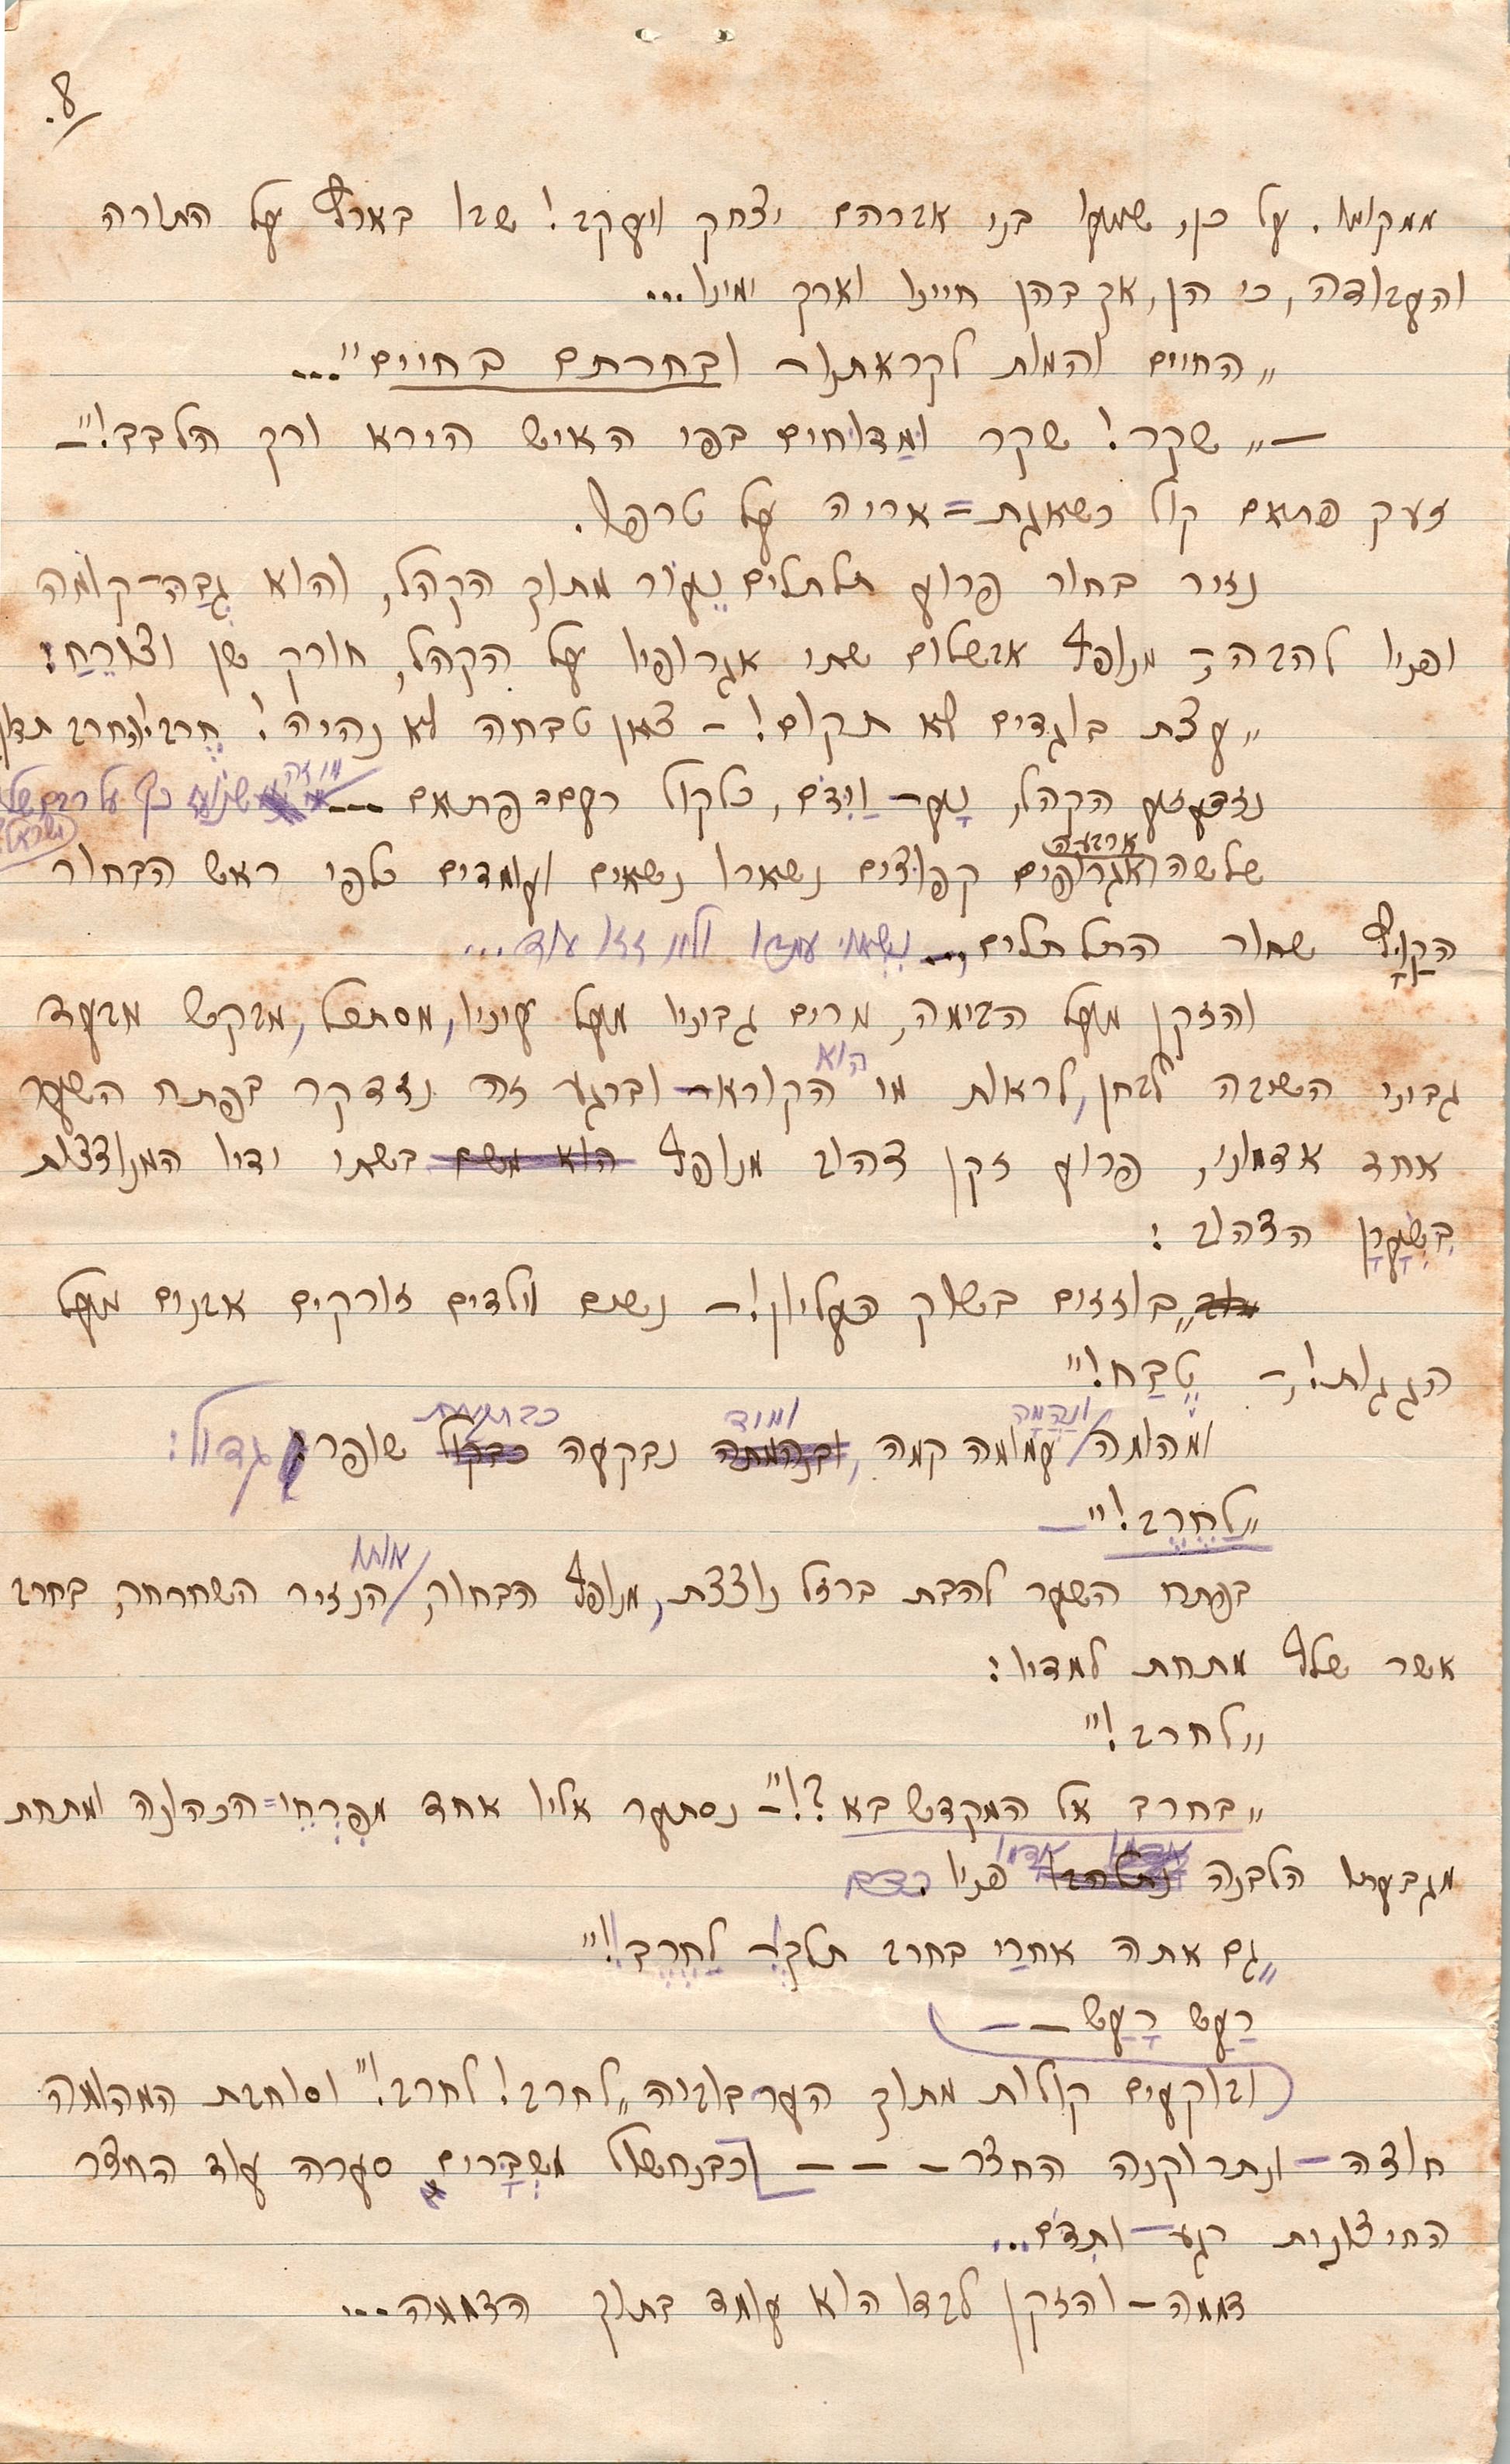 8.
ממקומו. על כן, שמעו בני אברהם יצחק ויעקב! שבו בארץ על התורה
והעבודה, כי הן, אך בהן חיינו וארך ימינו...
„החיים והמות לקראתנו – ובחרתם בחיים"...
– „שקר! שקר ומַדוחים בפי האיש הירא ורך הלבב!" –
זעק פתאם קול כשאגת=אריה על טרפו.
נזיר בחור פרוע תלתלים נֵעוֹר מתוך הקהל, והוא גְבַהּ-קומה
ופניו להבה; מנופף אבשלום שתי אגרופיו על הקהל, חורק שן וצורֵחַ:
„עצת בוגדים לא תקום! – צאן טבחה לא נהיה! חֶרב! החרב תדון
נזדעזע הקהל, נָע – וַיִדֹם, כלקול רעם פתאם --- מוזה
שלשה ארבעה אגרופים קפוצים נשארו נשאים ועומדים כלפי ראש הבחור
הקַוָץ שחור התלתלים... נִשְׂאוּ עמדו ולא זזו עוד...
והזקן מעל הבימה, מרים גביניו מעל עיניו, מסתכל, מבקש מבעד
גביני השיבה לבחן, לראות מי הוא הקורא – וברגע זה נזדקר בפתח השער
אחד אדמוני, פרוע זקן צהוב מנופף הוא משם בשתי ידיו המנוצצות
בִּשְׂעָרָן הצהוב:
„בוזזים בשוק העליון! – נשים וילדים זורקים אבנים מעל
הגגות! – טֶבַח!"
ומהומה/ונְהָמָה עמומה קמה, ובנהמתה ומיד נבקעה כבקול כבתקיעת שופר גדול:
„לַחֶרֶב!" –
בפתח השער להבת ברזל נוצצת, מנופף הבחור, אותו/הנזיר השחרחר, בחרב
אשר שלף מתחת למדיו:
„לחרב!"
„בחרב אל המקדש בא?!" – נסתער אליו אחד מִפִּרְחֵי=הכהונה ומתחת
מגבעתו הלבנה נתלהבו אדמו פניו כדם.
„גם אתה אחרַי בחרב תלך – לַחֶרֶב!"
רַעַש רָעַש – –
ובוקעים קולות מתוך הערבוביה „לחרב! לחרב!" וסוחבת המהומה
חוצה – ונתרוקנה החצר – – – כבנחשול מִשְׁבָּרִים סערה עוד החצר
החיצונית רגע – ותִדֹם...
דממה – והזקן לבדו הוא עומד בתוך הדממה...